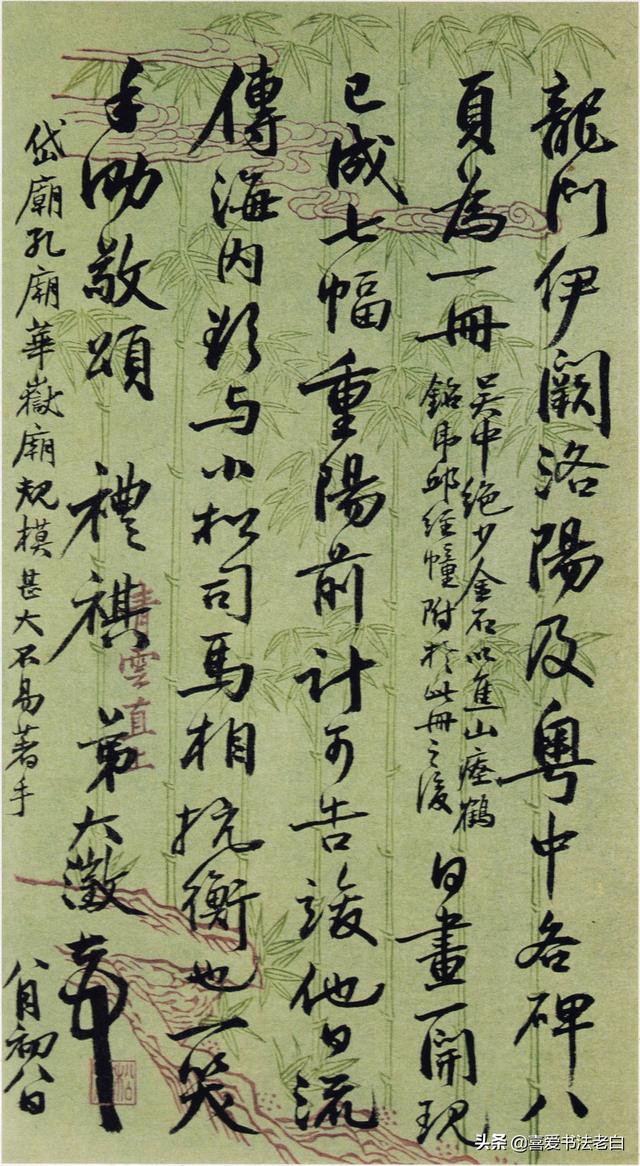 龍門伊闕洛陽及粵中各碑八
頁為一冊
吳中絕少金石以焦山瘞鶴
銘虎邱經幢附於此冊之後
日畫一開現
已成七幅重陽前計可告竣他日流
傳海内与小松司馬相抗衡也一笑
手泐敬頌 禮祺 弟大澂
八月初八日
岱廟孔廟華嶽廟規模甚大不易著手
青雲直上
头条 @喜爱书法老白